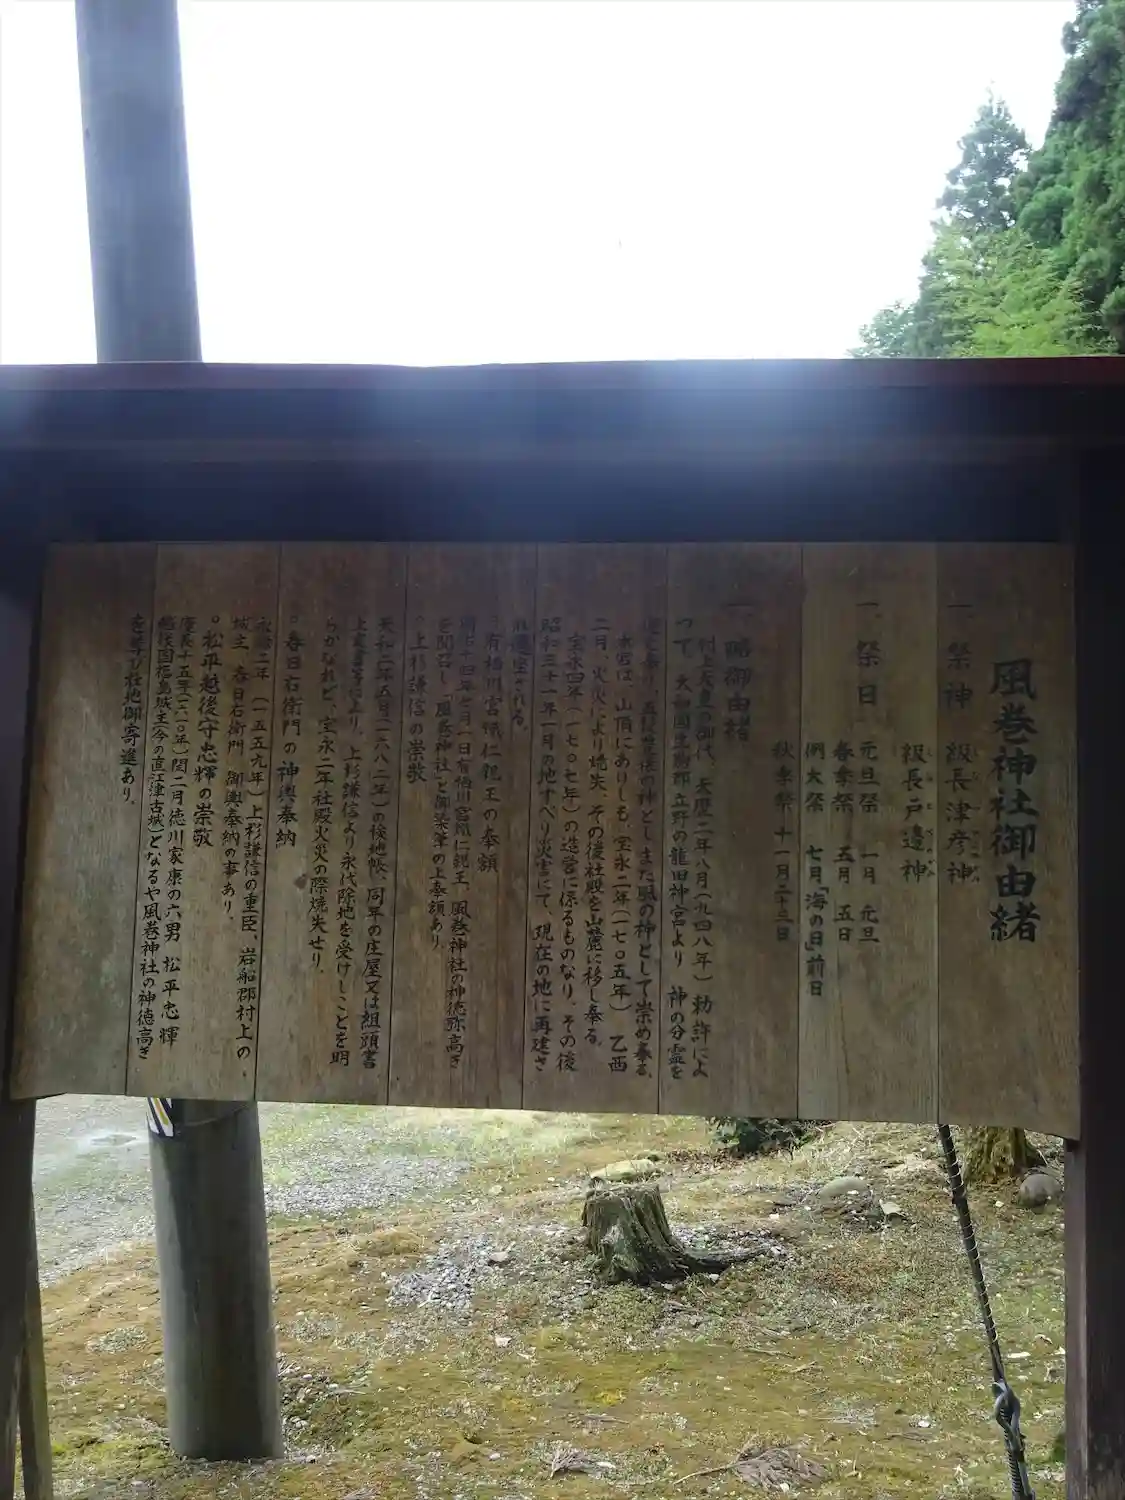 風巻神社御由緒
一、祭神 級長津彦神
級長戸邊神
一、祭日 元旦祭 一月 元旦
春季祭 五月 五日
例大祭 七月「海の日」前日
秋季祭 十一月二十三日
一、略御由緒
村上天皇の御代、天歴二年八月(九四八年)勅許によ
つて、大和国生駒郡立野の龍田神宮より 神の分霊を
の神としまた風の神として崇め奉る、
本宮は、山頂にありしも、宝永二年(一七〇五年) 乙酉
二月、火災により焼失、その後社殿を山麓に移し奉る。
宝永四年(一七〇七年)の造営に係るものなり。その後
昭和三十一年一月の地すべり災害にて、現在の地に再建さ
れ遷座される。
。有栖川宮幟仁親王の奉額
明治十四年七月一日有栖川宮幟仁親王、風巻神社の神徳弥高き
を聞召し、風巻神社と御染筆の上奉額あり
。上杉謙信の崇敬
天和二年五月(一六八二年)の検地帳、同年の庄屋又は組頭書
上書等により、上杉謙信より永代除地を受けしことを明
らかなれど、宝永二年社殿火災の際焼失せり。
。春日右衛門の神輿奉納
永禄二年(一五五九年)上杉謙信の重臣、岩船郡村上の
城主、春日右衛門、御輿奉納の事あり。
。松平越後守忠輝の崇敬
慶長十五年(一六一〇年)閏二月徳川家康の六男 松平忠輝
越後国福島城主(今の直江津古城)となるや風巻神社の神徳高き
を尊び社地御寄進あり。